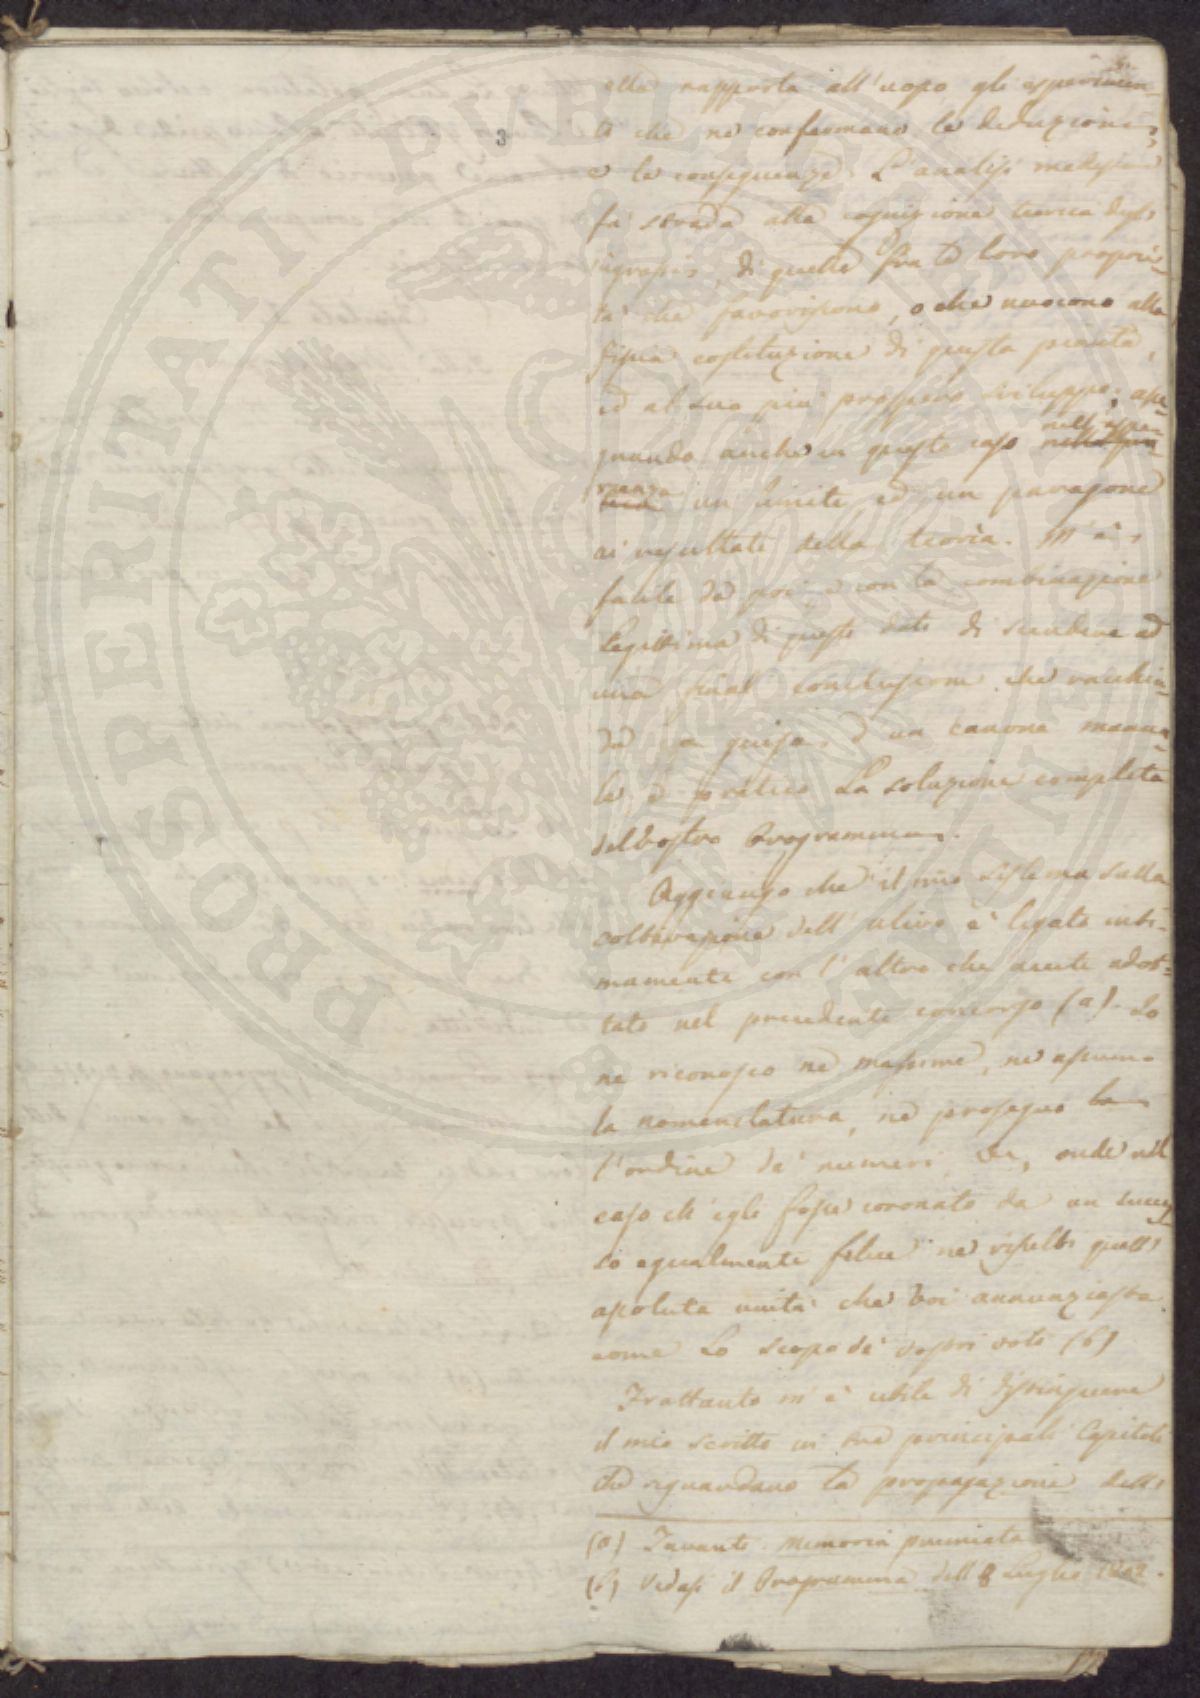 3
ella rapporta all'uopo gli esperimen-
ti che ne confermano le deduzioni,
e le conseguenze. L'analisi medesima
fa strada alla cognizione teorica degl'
ingrassi, di quelle fra le loro proprie-
tà che favoriscono, o che nuocono alla
fisica costituzione di questa pianta,
ed al suo più prospero sviluppo; asse-
gnando anche in questo caso nell'espe-
rienza un limite ed un paragone
ai resultati della teoria. M'è
facile da poi, e con la combinazione
legittima di questi dati di scendere ad
una final conclusione che racchiu-
da a guisa d'un canone manua-
le, e pratico la soluzione completa
del Vostro Programma.
Aggiungo che il mio sistema sulla
coltivazione dell'ulivo è ligato inti-
mamente con l'altro che avete adot-
tato nel precedente concorso (a). Io
ne riconosco le massime, ne assumo
la nomenclatura, ne proseguo
l'ordine de' numeri &c, onde nel
caso ch'egli fosse coronato da un succes-
so egualmente felice ne risulti quell'
assoluta unità che Voi annunziaste
come lo scopo de' vostri voti (b)
Trattanto m'è utile di distinguere
il mio scritto in tre principali Capitoli
che riguardano la propagazione dell'
(a) Tavanti Memoria premiata
(b) Vedasi il Programma dell' 8 Luglio
PROSPERITATI PUBLICAE